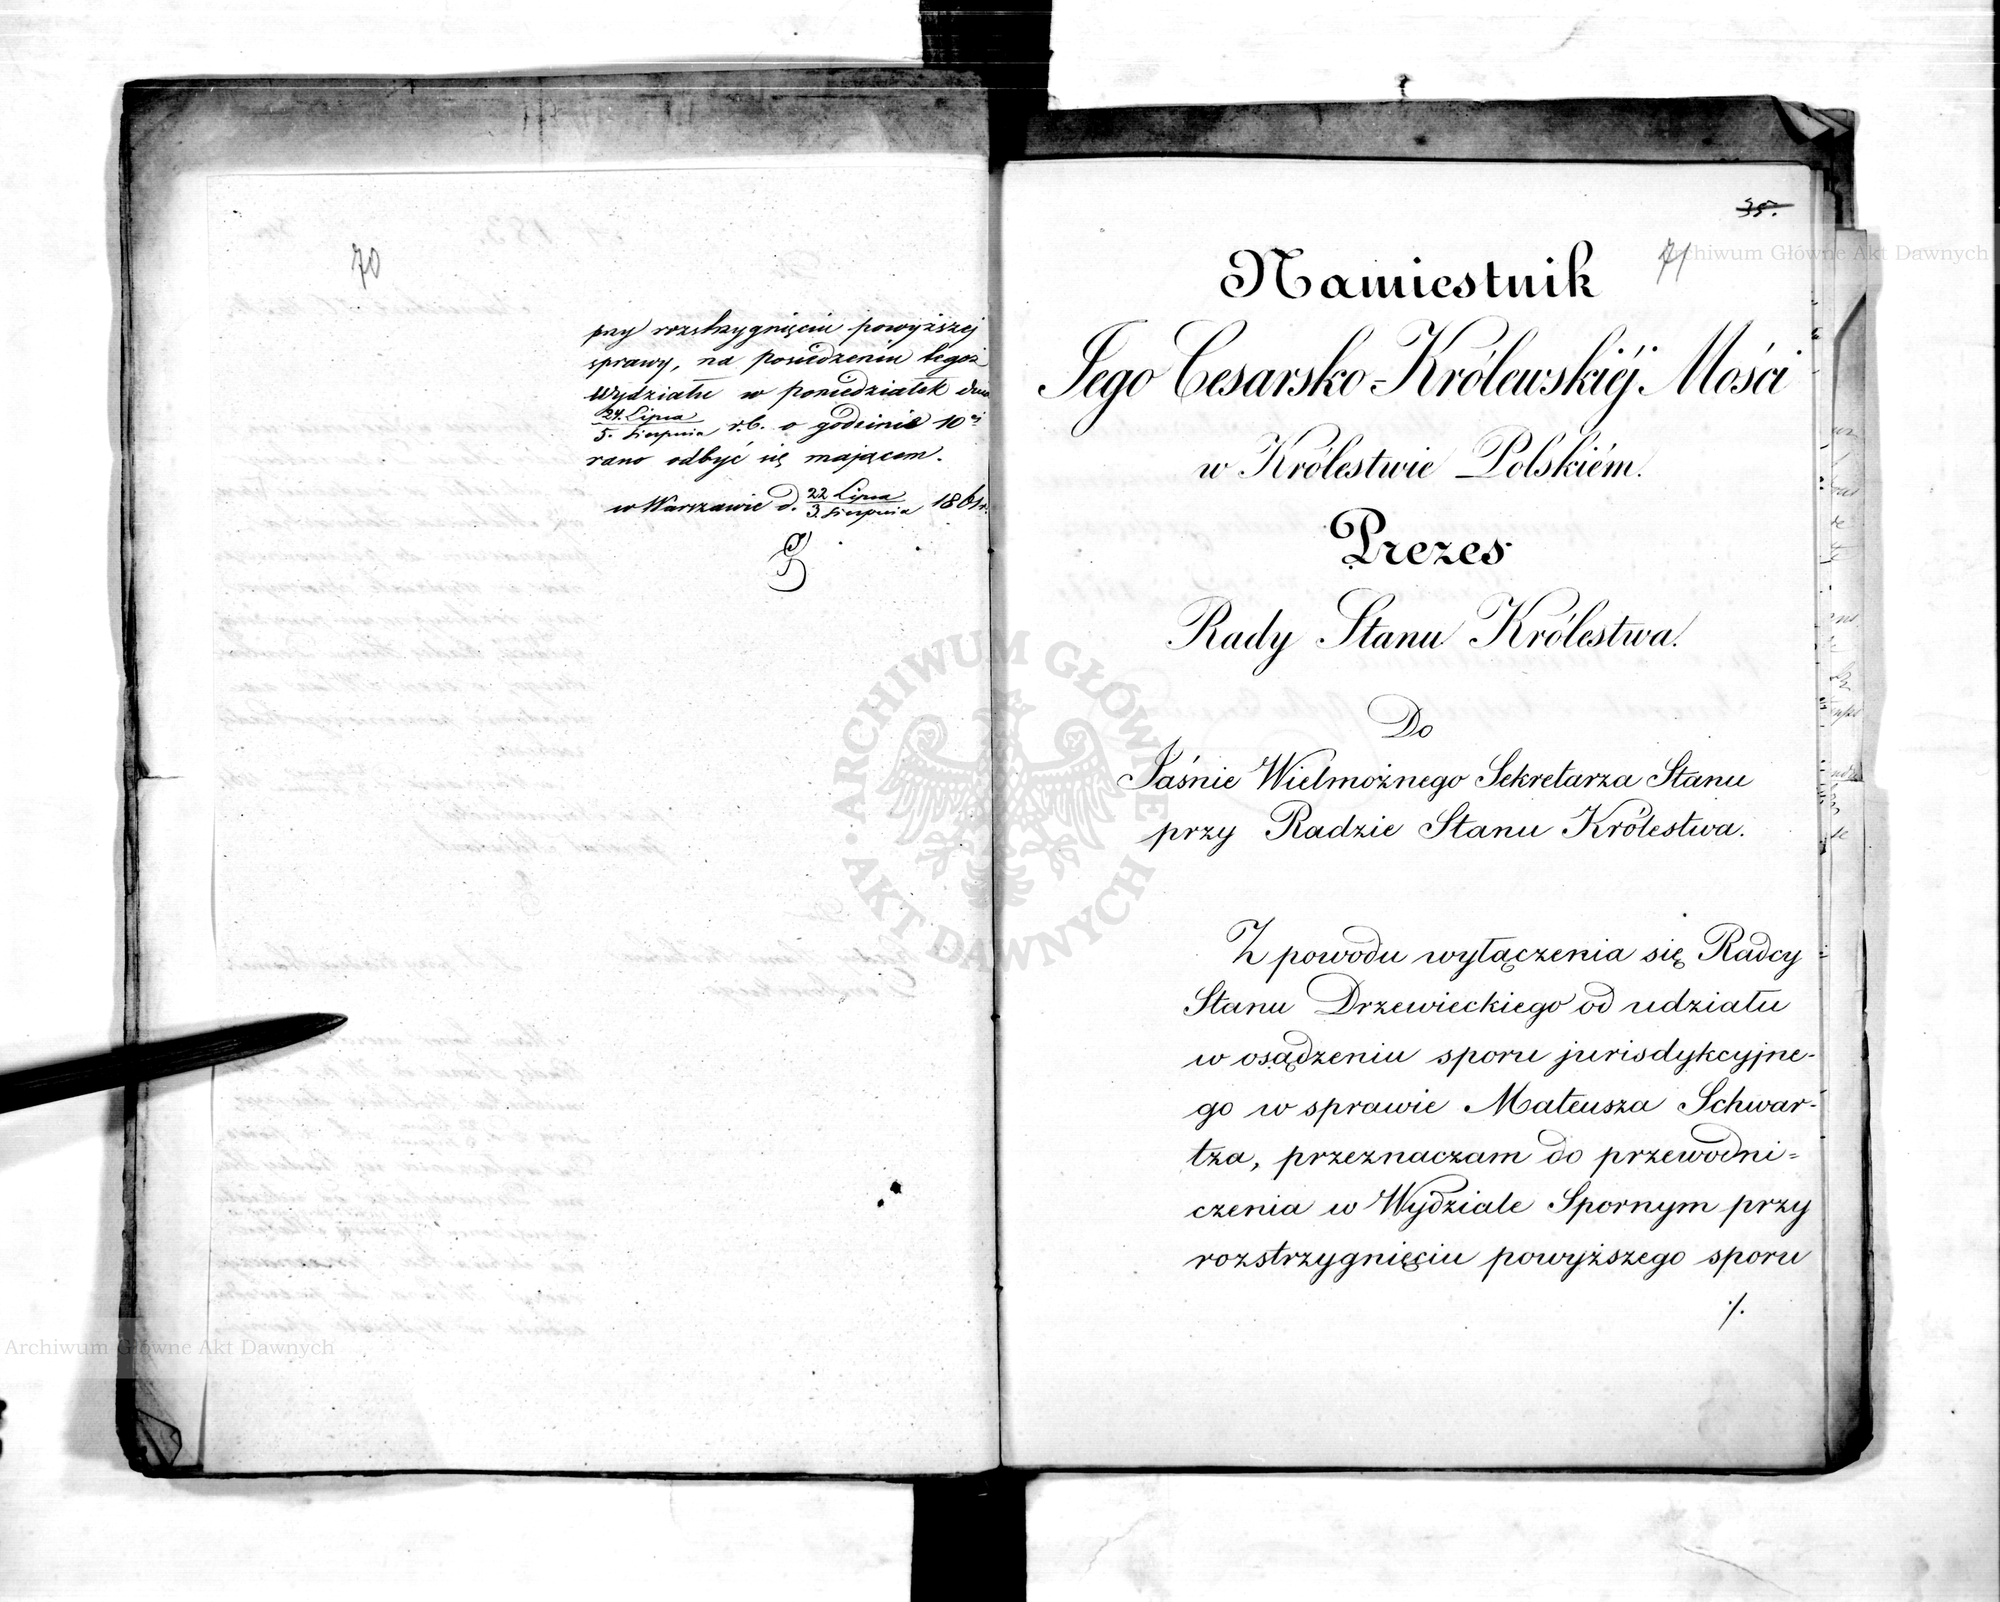 70
przy rozstrzygnięciu powyższej
sprawy, na posiedzeniu tegoż
Wydziału w poniedziałek dnia
24. Lipca
5. Sierpnia r.b. o godzinie 10ej
rano odbyć się mającem.
w Warszawie d. 22 Lipca
3. Sierpnia 1861 r.
35.
71
Namiestnik
Jego Cesarsko-Królewskiéj Mości
w Królestwie Polskiém.
Prezes
Rady Stanu Królestwa.
Do
Jaśnie Wielmożnego Sekretarza Stanu
przy Radzie Stanu Królestwa.
Z powodu wyłączenia się Radcy
Stanu Drzewieckiego od udziału
w osądzeniu sporu jurisdykcyjne-
go w sprawie Mateusza Schwar-
tza, przeznaczam do przewodni=
czenia w Wydziale Spornym przy
rozstrzygnięciu powyższego sporu
./.
ARCHIWUM GŁÓWNE AKT DAWNYCH
Archiwum Główne Akt Dawnych
Archiwum Główne Akt Dawnych